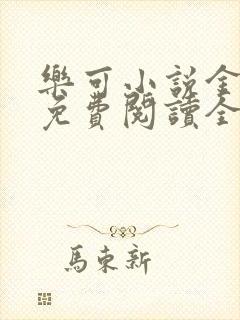 樂可小說全
免費閱讀全
馬東新